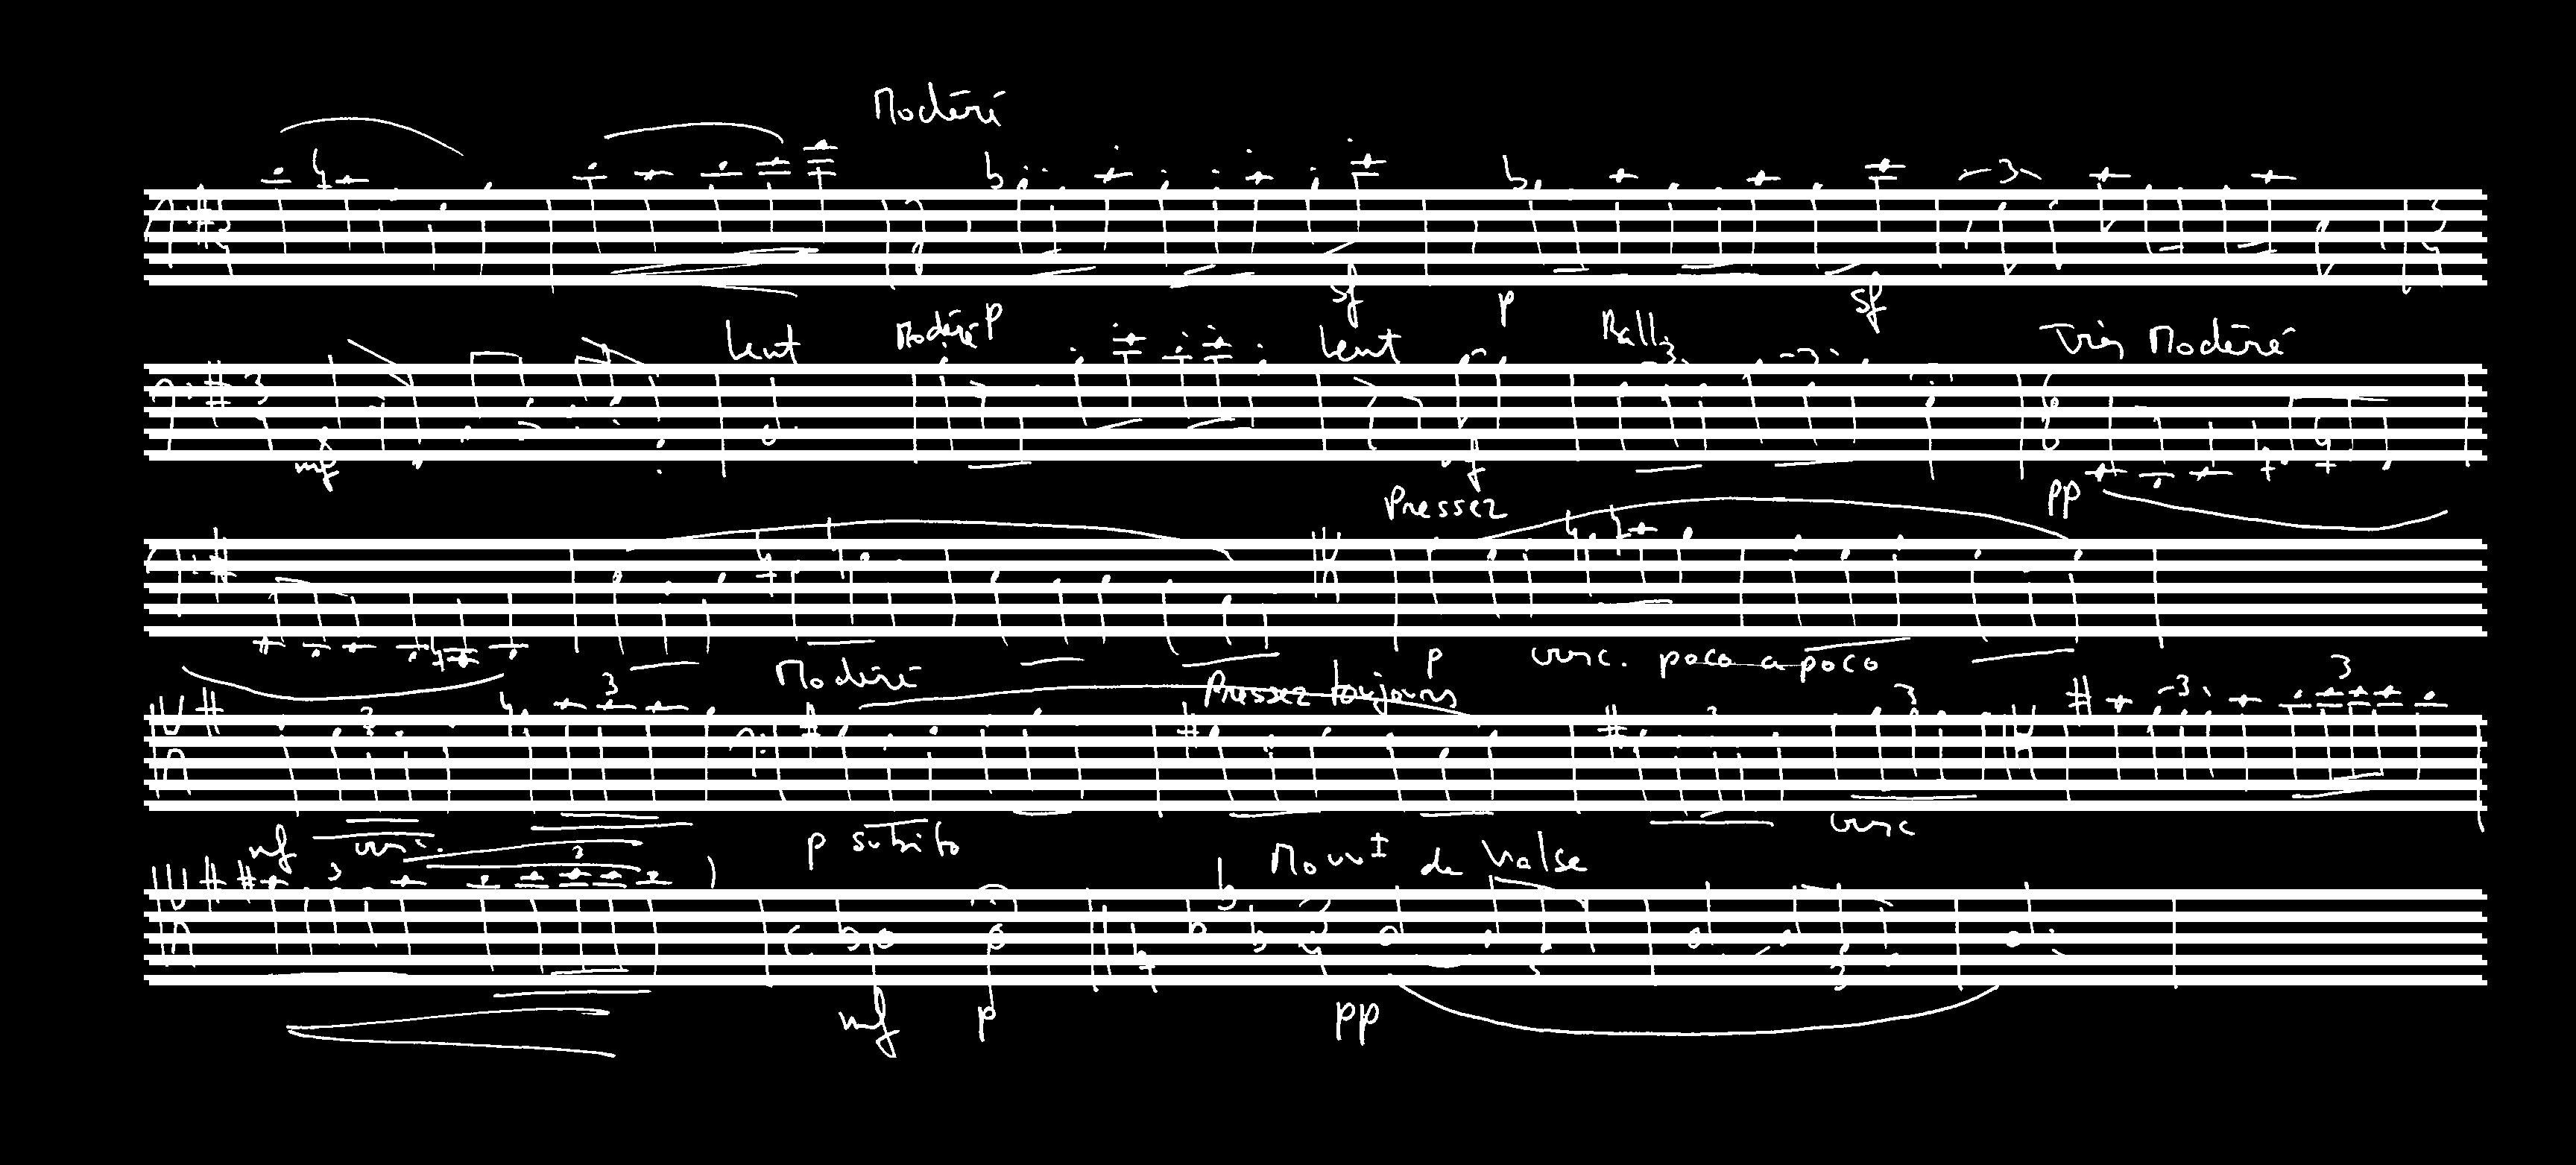 Modéré
3
sf p sf
Lent Modéré p Lent Rall. Très Modéré
3 3
mf pp
Pressez
p cresc. poco a poco
Modéré Pressez toujours
3 3 3 3 3 3
mf cresc. p subito cresc
Mouvt de Valse
3 3
3
mf p pp